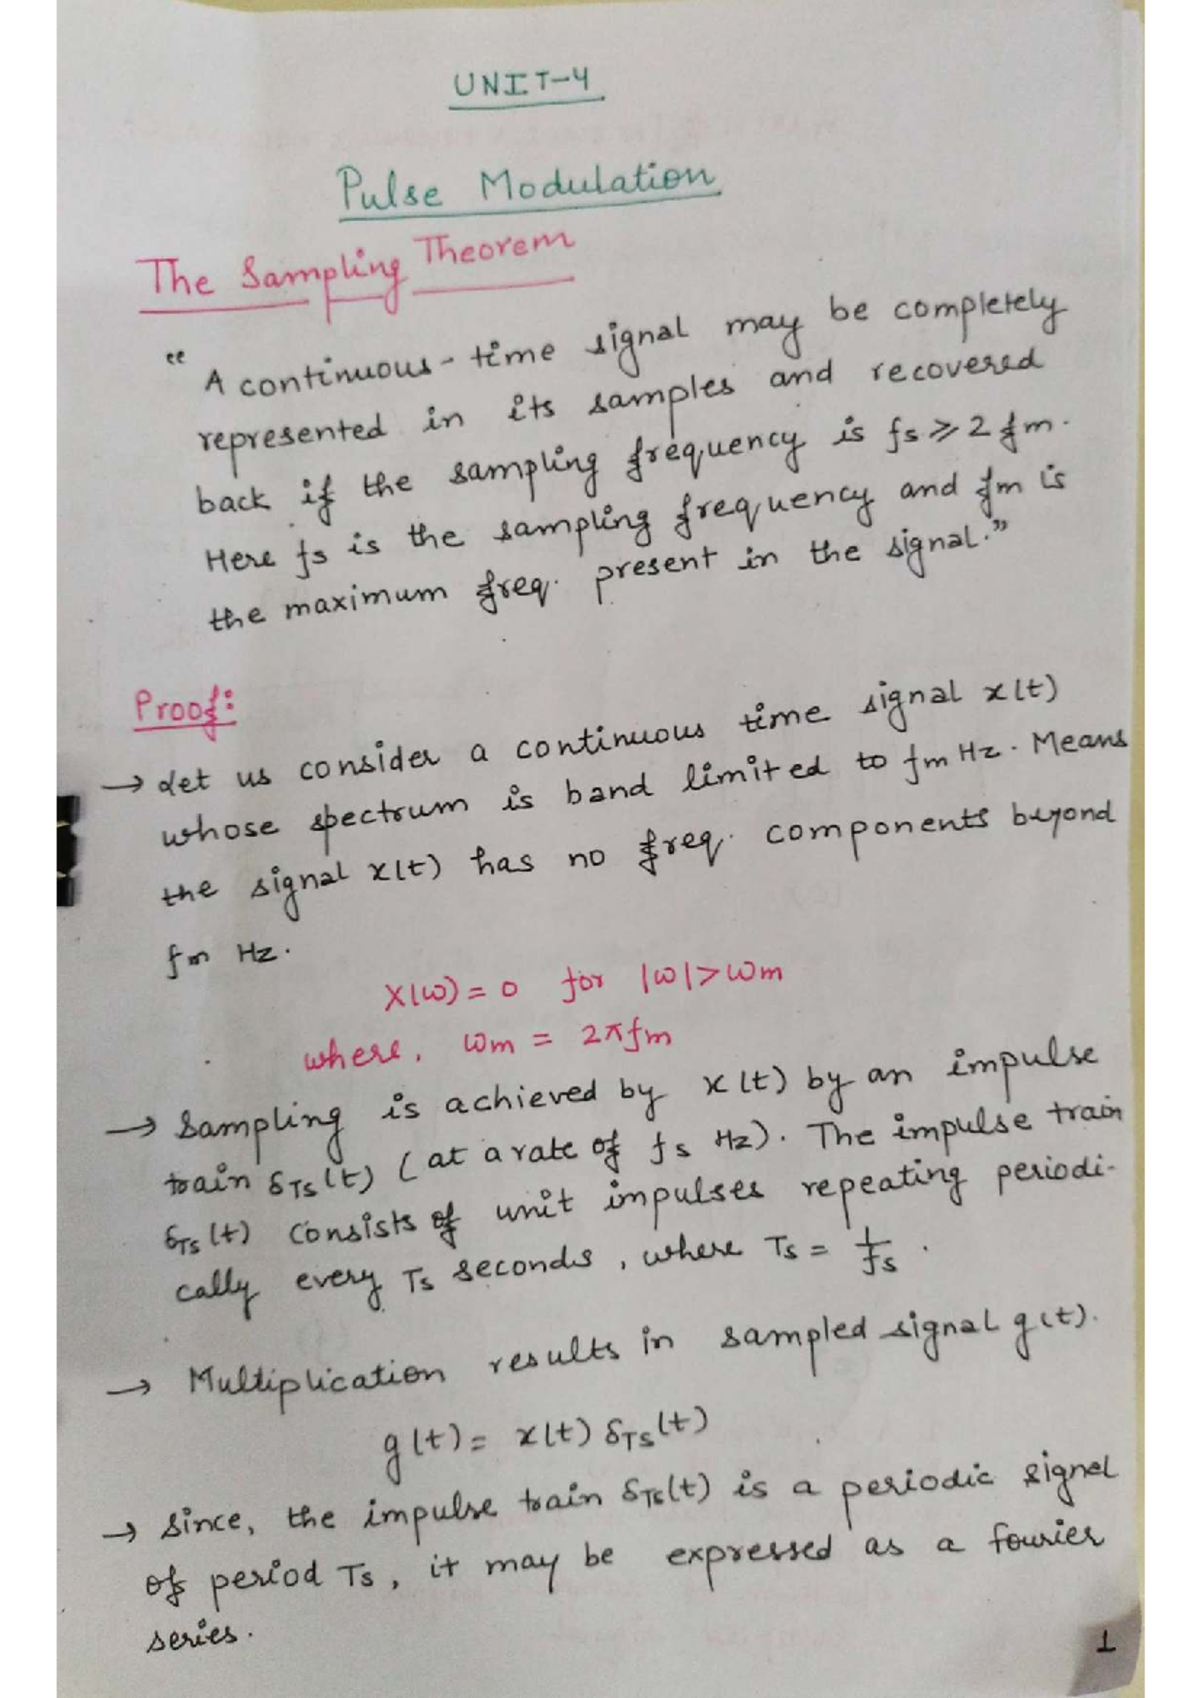 UNIT-4
Pulse Modulation
The Sampling Theorem
“A continuous-time signal may be completely
represented in its samples and recovered
back if the sampling frequency is fs ≥ 2fm.
Here fs is the sampling frequency and fm is
the maximum freq. present in the signal.”
Proof:
→ Let us consider a continuous time signal x(t)
whose spectrum is band limited to fm Hz. Means
the signal x(t) has no freq. components beyond
fm Hz.
X(ω) = 0 for |ω| > ωm
where, ωm = 2πfm
→ Sampling is achieved by x(t) by an impulse
train δTs(t) (at a rate of fs Hz). The impulse train
δTs(t) consists of unit impulses repeating periodi-
cally every Ts seconds, where Ts = 1/fs.
→ Multiplication results in sampled signal g(t).
g(t) = x(t) δTs(t)
→ Since, the impulse train δTs(t) is a periodic signal
of period Ts, it may be expressed as a fourier
series.
1